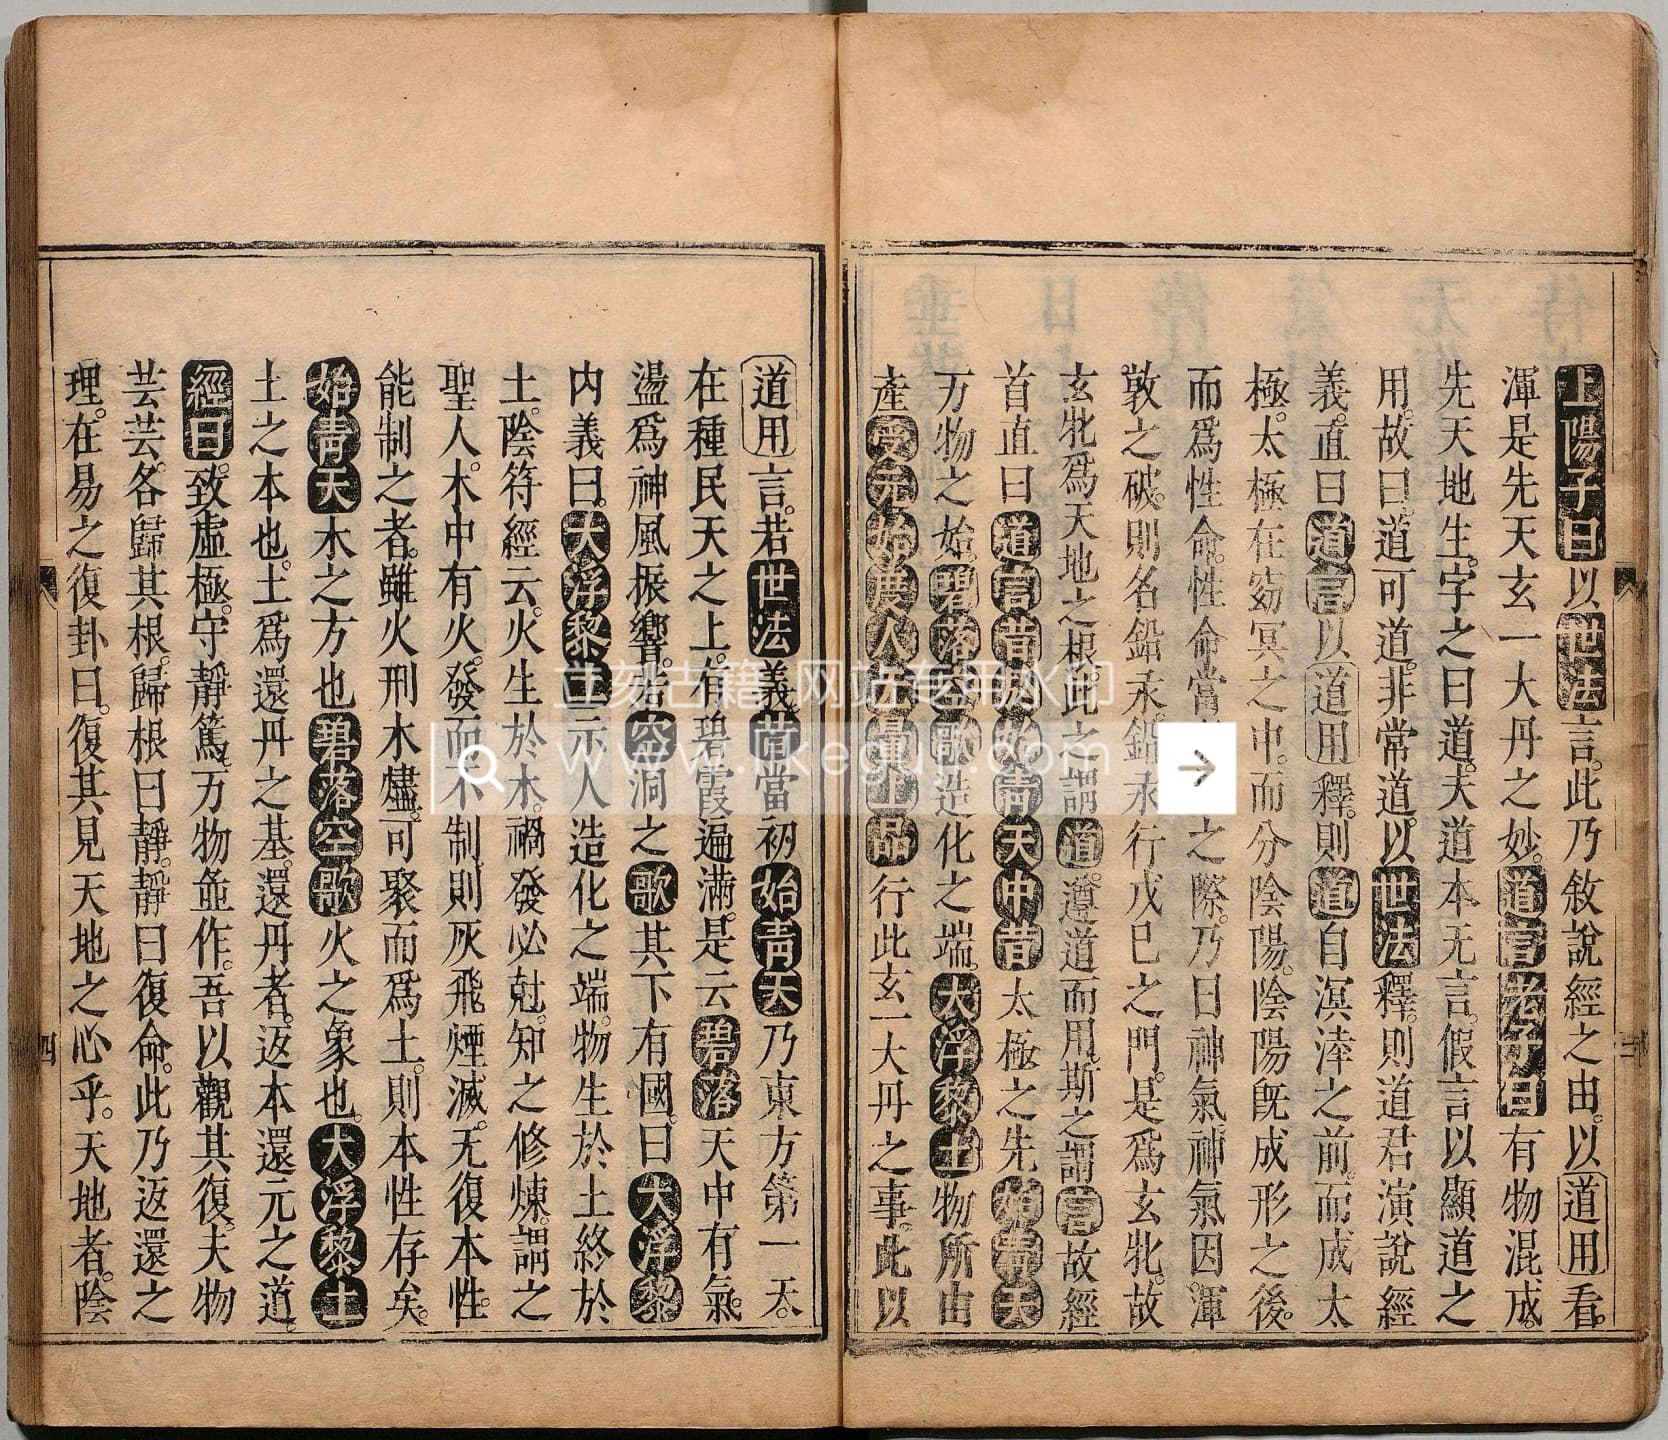 上陽子曰以世法言此乃敘說經之由以道用看
渾是先天玄一大丹之妙道言老子曰有物混成
先天地生字之曰道夫道本无言假言以顯道之
用故曰道可道非常道以世法釋則道君演說經
義直曰道言以道用釋則道自溟涬之前而成太
極太極在窈冥之中而分陰陽陰陽旣成形之後
而爲性命性命當之際乃曰神氣神氣因渾
敦之破則名鉛汞鉛汞行戊巳之門是爲玄牝故
玄牝爲天地之根此之謂道遵道而用斯之謂言故經
首直曰道言昔於始青天中昔太極之先始青天
万物之始碧落空歌造化之端大浮黎土物所由
產受元始度人无量上品行此玄一大丹之事此以
道用言若世法義昔當初始青天乃東方第一天
在種民天之上有碧霞遍滿是云碧落天中有氣
盪爲神風振響若空洞之歌其下有國曰大浮黎
内義曰大浮黎土示人造化之端物生於土終於
土陰符經云火生於木禍發必尅知之修煉謂之
聖人木中有火發而不制則灰飛煙滅无復本性
能制之者雖火刑木燼可聚而爲土則本性存矣
始青天木之方也碧落空歌火之象也大浮黎土
土之本也土爲還丹之基還丹者返本還元之道
經曰致虛極守靜篤万物並作吾以觀其復夫物
芸芸各歸其根歸根曰靜靜曰復命此乃返還之
理在易之復卦曰復其見天地之心乎天地者陰
三
四
立刻古籍 网站专用水印
www.likeguji.com